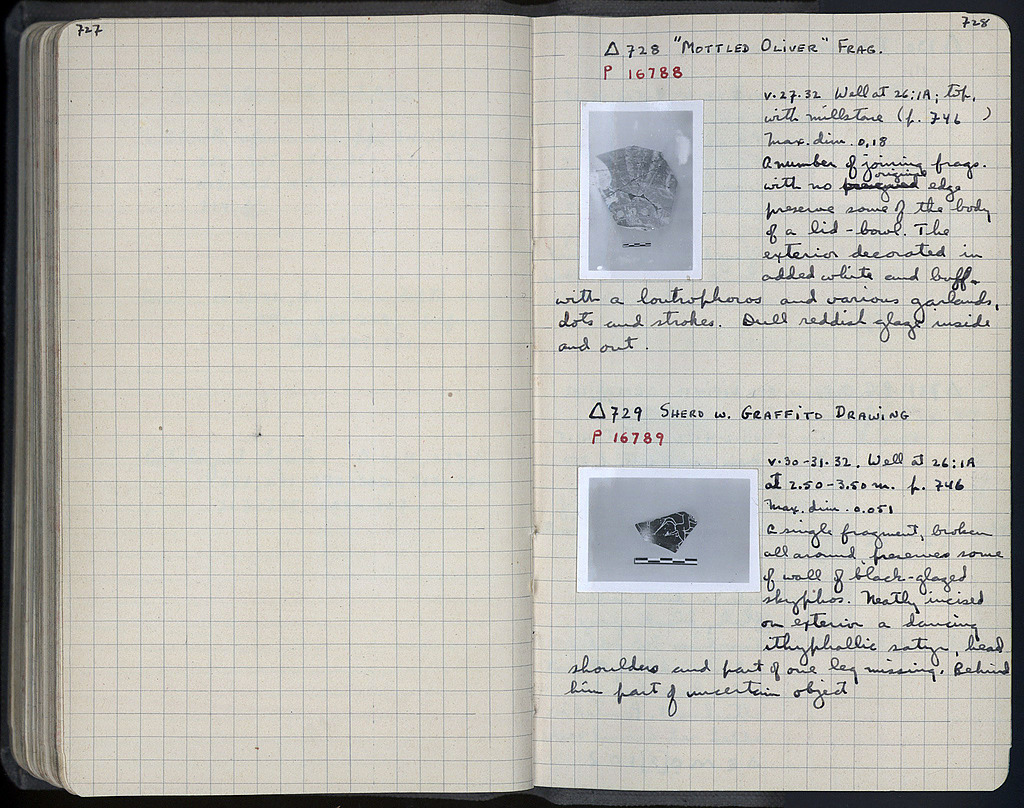 727
728
Δ 728 "MOTTLED OLIVER" FRAG.
P 16788
v.27.32 Well at 26:1A; top,
with millstone (p. 746 )
Max. dim. 0,18
A number of joining frags.
with no original edge
preserve some of the body
of a lid-bowl. The
exterior decorated in
added white and buff
with a loutrophoros and various garlands,
dots and strokes. Dull reddish glaze inside
and out.
Δ 729 SHERD W. GRAFFITO DRAWING
P 16789
v.30-31.32. Well at 26:1A
at 2.50-3.50 m. p. 746
Max. dim. 0.051
A single fragment, broken
all around, preserves some
of wall of black-glazed
skyphos. Neatly incised
on exterior a dancing
ithyphallic satyr, head
shoulders and part of one leg missing. Behind
him part of uncertain object